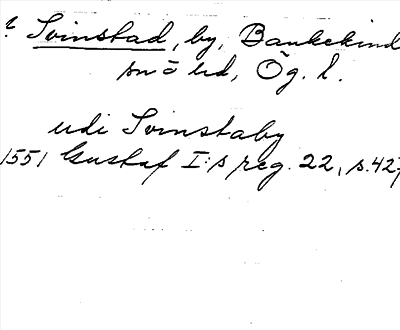 ? Svinstad, by, Bankekind
sn o hd, Ög. l.
udi Svinstaby
1551 Gustaf I:s reg. 22, s. 427